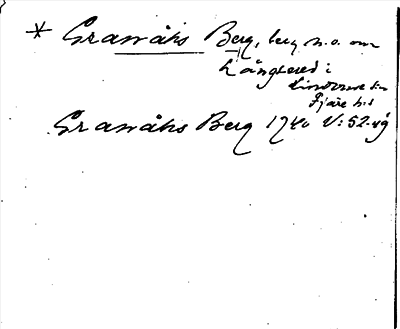 * Granåhs Berg, berg n.o. om
Långered i
Lindome sn
Fjäre hd
Granåhs Berg 1740 V:52.49